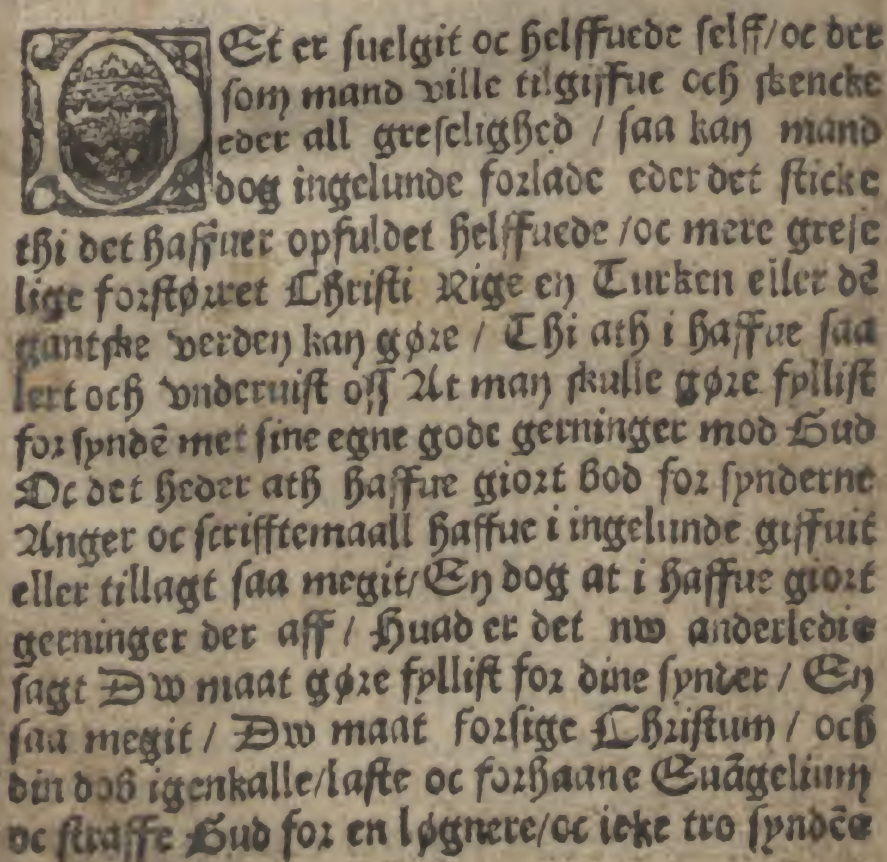 DEt er suelgit oc helffuede selff/oc der
som mand ville tilgiffue och skencke
eder all greselighed / saa kan mand
dog ingelunde forlade eder det sticke
thi det haffuer opfuldet helffuede /oc mere grese
lige forstørret Christi Rige en Turken eller dē
gantske verden kan gøre / Thi ath i haffue saa
lert och vnderuist oss At man skulle gøre fyllist
for syndē met sine egne gode gerninger mod Gud
Oc det heder ath haffue giort bod for synderne
Anger oc scrifftemaall haffue i ingelunde giffuit
eller tillagt saa megit/En dog at i haffue giort
gerninger der aff / Huad er det nw anderledis
sagt Dw maat gøre fyllist for dine synder / En
saa megit / Dw maat forsige Christum / och
din dob igenkalle/laste oc forhaane Euāgelium
oc straffe Gud for en løgnere/oc icke tro syndēs